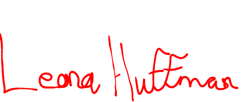 Leona Huffman